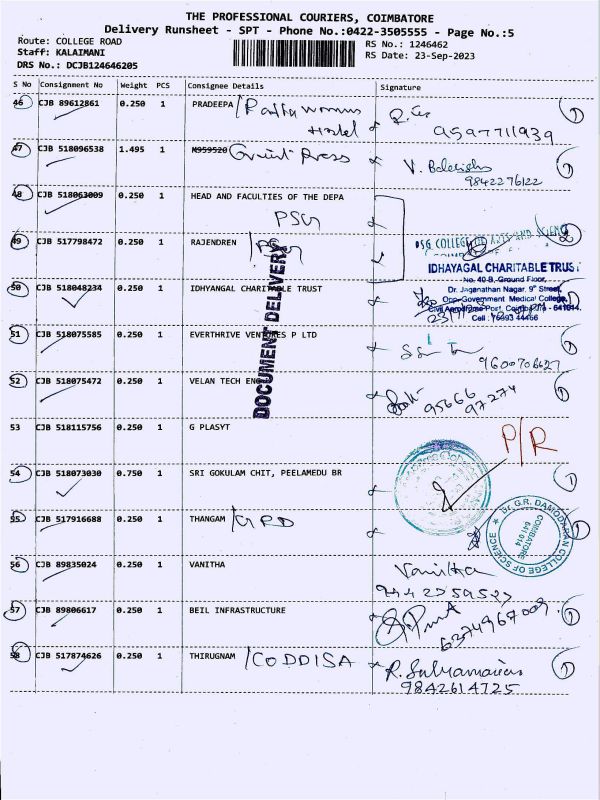 THE PROFESSIONAL COURIERS, COIMBATORE
Delivery Runsheet - SPT - Phone No.:0422-3505555 - Page No.:5
Route: COLLEGE ROAD
RS No.: 1246462
Staff: KALAIMANI
RS Date: 23-Sep-2023
DRS No.: DCJB124646205
S No Consignment No Weight PCS Consignee Details Signature
46 CJB 89612861 0.250 1 PRADEEPA / womens
Hostel
9597711939
47 CJB 518096538 1.495 1 M959520 Press
V.
9842276122
48 CJB 518063009 0.250 1 HEAD AND FACULTIES OF THE DEPA
PSG
PSG COLLEGE OF ARTS AND SCIENCE
49 CJB 517798472 0.250 1 RAJENDREN / PSG
IDHAYAGAL CHARITABLE TRUST
No. 40-B, Ground Floor,
50 CJB 518048234 0.250 1 IDHYANGAL CHARITABLE TRUST
Dr. Jaganathan Nagar, 9th Street,
Opp. Government Medical College,
Civil Aerodrome Post, Coimbatore - 641014.
Cell : 76393 44466
DOCUMENT DELIVERY
51 CJB 518075585 0.250 1 EVERTHRIVE VENTURES P LTD
9600706627
52 CJB 518075472 0.250 1 VELAN TECH ENGG
95666
97274
53 CJB 518115756 0.250 1 G PLASYT
P/R
54 CJB 518073030 0.750 1 SRI GOKULAM CHIT, PEELAMEDU BR
55 CJB 517916688 0.250 1 THANGAM / GRD
Dr. G.R. DAMODARAN COLLEGE OF SCIENCE
COIMBATORE
641 014
56 CJB 89835024 0.250 1 VANITHA
Vanitha
57 CJB 89806617 0.250 1 BEIL INFRASTRUCTURE
6374967009
58 CJB 517874626 0.250 1 THIRUGNAM / CODDISA
R.
9842614725